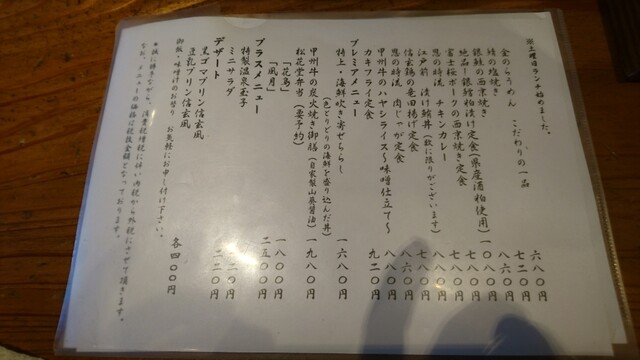 ※土曜日ランチ始めました。
金のらうめん こだわりの一品 六八〇円
鯖の塩焼き 七二〇円
銀鮭の西京焼き 八六〇円
絶品!銀鱈粕漬け定食(県産酒粕使用) 一〇八〇円
富士桜ポークの西京焼き定食 八八〇円
恩の時流 チキンカレー 七八〇円
江戸前 漬け鮪丼(数に限りがございます) 七八〇円
信玄鶏の竜田揚げ定食 八六〇円
恩の時流 肉じゃが定食 八八〇円
甲州牛のハヤシライス~味噌仕立て~
カキフライ定食 九二〇円
プレミアメニュー
特上・海鮮吹き寄せちらし 一六八〇円
(色とりどりの海鮮を盛り込んだ丼)
甲州牛の炭火焼き御膳(自家製山葵醤油) 一九八〇円
松花堂弁当(要予約)
「花鳥」 一八〇〇円
「風月」 二五〇〇円
プラスメニュー
特製温泉玉子
ミニサラダ 二二〇円
デザート
黒ゴマプリン信玄風
豆乳プリン信玄風 各四〇〇円
御飯・味噌汁のお替り お気軽にお申し付け下さい。
※誠に勝手ながら、消費税増税に伴い内税から外税にさせて頂きます。
なお、メニューの価格は税抜金額となっております。